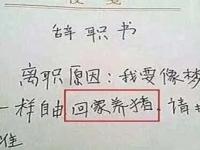 辞职书
离职原因：我要像梦
一样自由，回家养猪，请
准